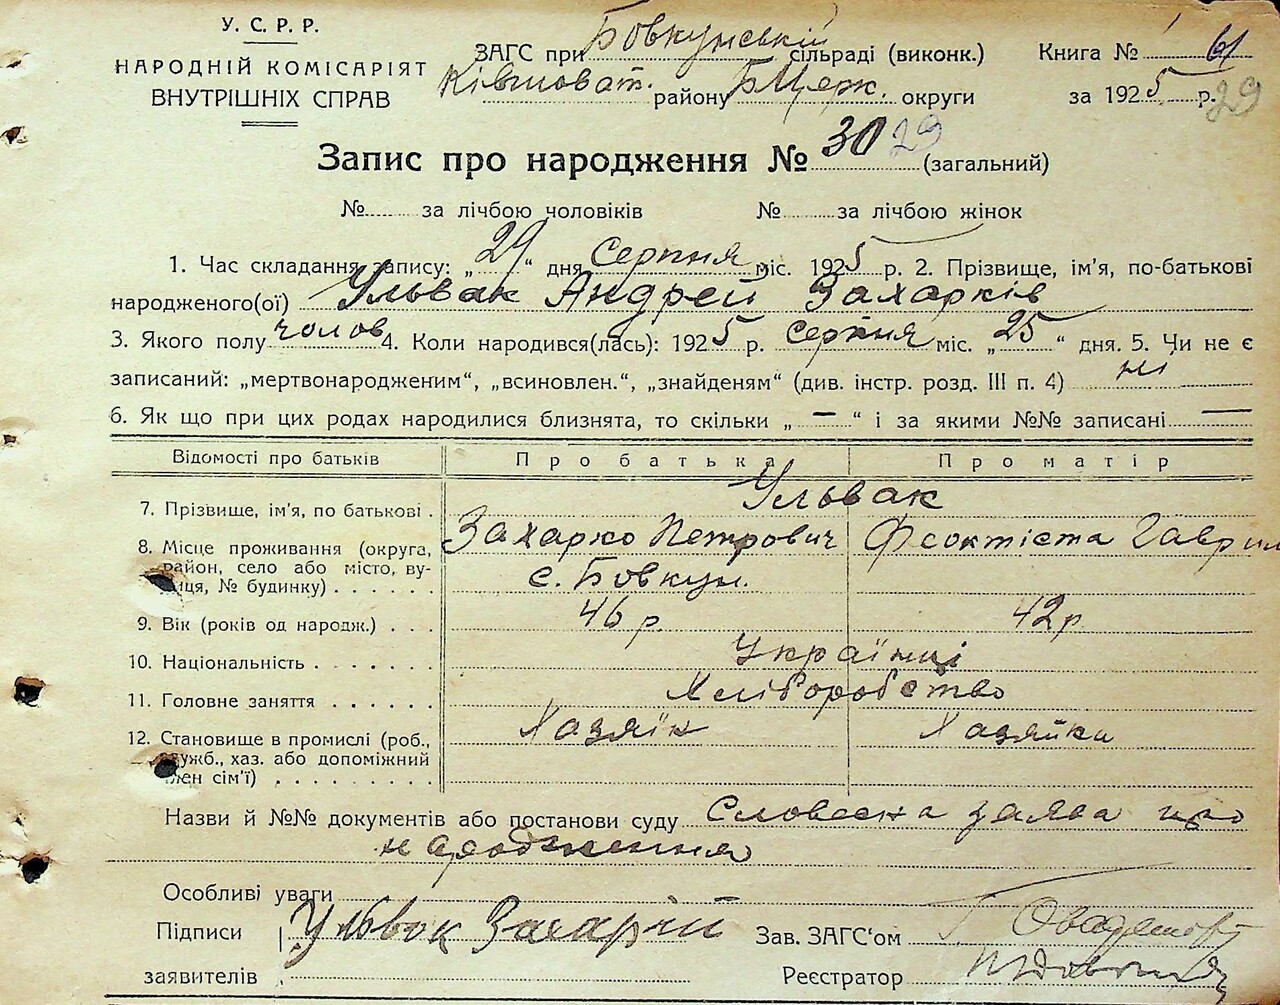 У. С. Р. Р.
НАРОДНІЙ КОМІСАРІЯТ
ВНУТРІШНІХ СПРАВ
ЗАГС при Бовкунській сільраді (виконк.) Книга № 61
Ківшоват. району БЦерк. округи за 1925 р. 29
Запис про народження № 30 29 (загальний)
№ за лічбою чоловіків № за лічбою жінок
1. Час складання запису: „29“ дня Серпня міс. 1925 р. 2. Прізвище, ім'я, по-батькові
народженого(ої) Ульвак Андрей Захарків
3. Якого полу чолов 4. Коли народився(лась): 1925 р. Серпня міс. „25“ дня. 5. Чи не є
записаний: „мертвонародженим“, „всиновлен.“, „знайденям“ (див. інстр. розд. III п. 4) ні
6. Як що при цих родах народилися близнята, то скільки „—“ і за якими №№ записані —
Відомості про батьків Про батька Про матір
7. Прізвище, ім'я, по батькові . Ульвак
Захарко Петрович Феоктіста Гаврил
8. Місце проживання (округа, район, село або місто, вулиця, № будинку) . . . . . . с. Бовкун.
9. Вік (років од народж.) . . . 46 р. 42 р
10. Національність . . . . . . . Українці
11. Головне заняття . . . . . . Хліборобство
12. Становище в промислі (роб., служб., хаз. або допоміжний член сім'ї) . . . . . . . . . Хазяїн Хазяйка
Назви й №№ документів або постанови суду Словесна заява про
народження
Особливі уваги
Підписи Ульвок Захарій Зав. ЗАГС‘ом
заявителів Реєстратор